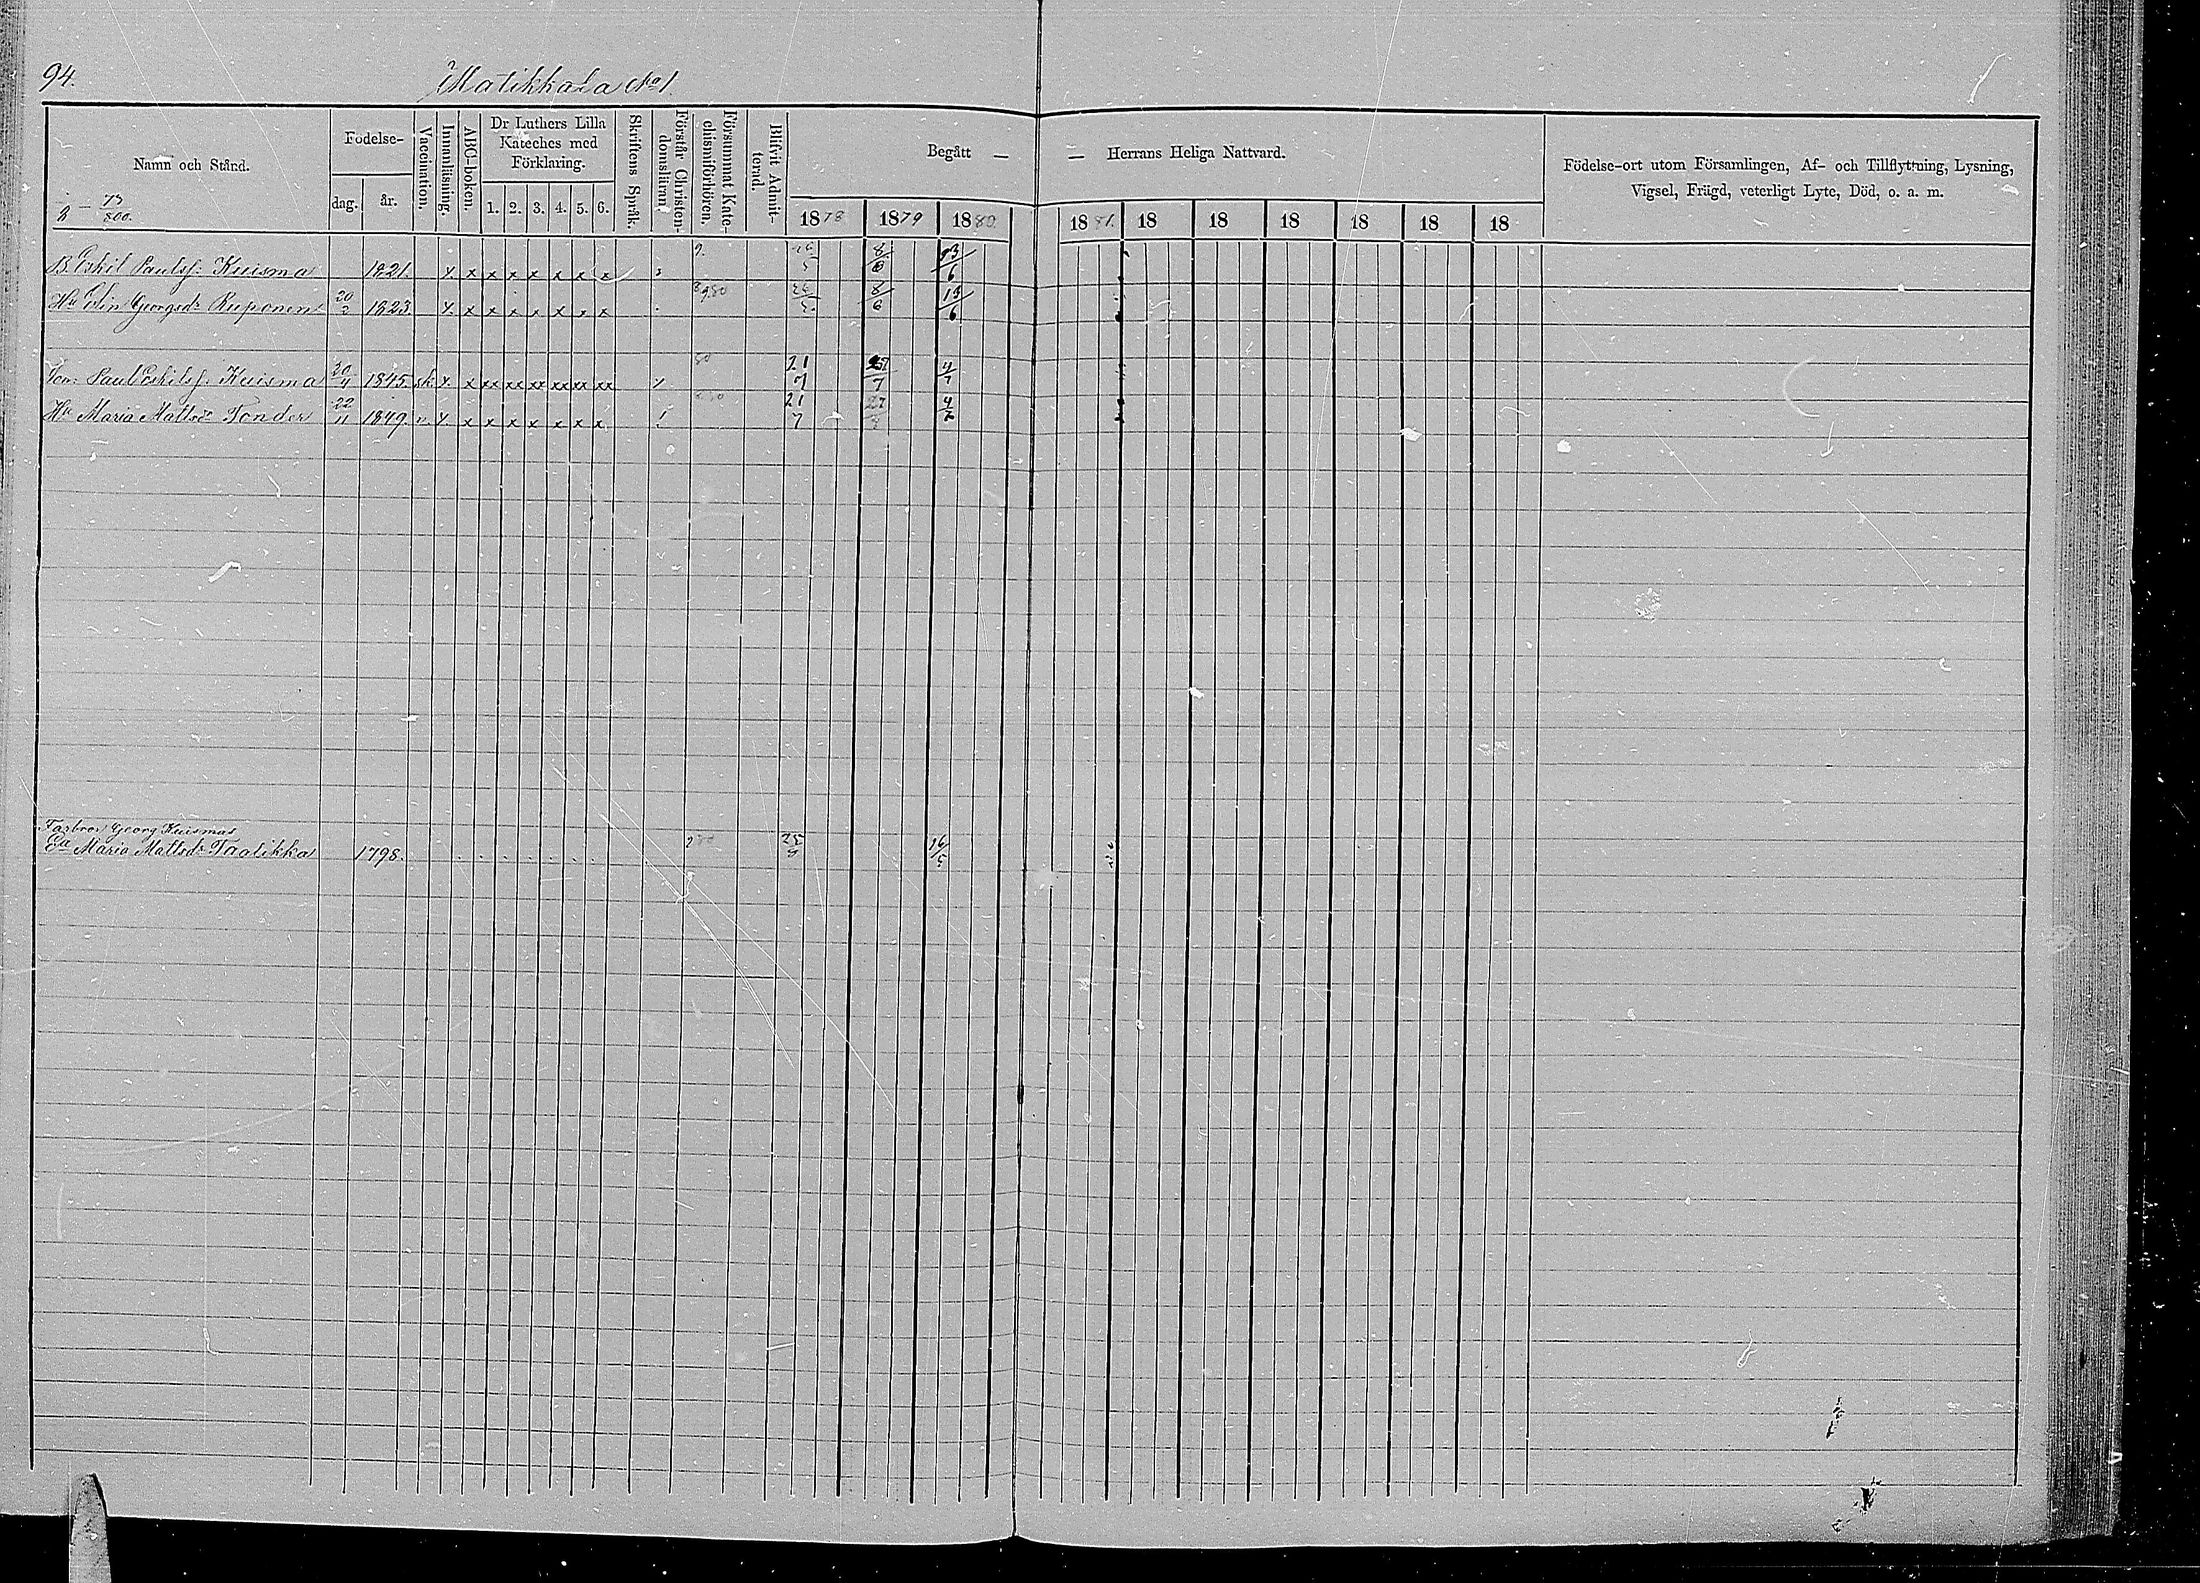 94.
Matikkala No 1
Namn och Stånd.
Födelse-
dag.
år.
Vaccination.
Innanläsning.
ABC-boken.
Dr Luthers Lilla
Kateches med
Förklaring.
1. 2. 3. 4. 5. 6.
Skriftens Språk.
Förstår Christen-
domsläran.
Försummat Kate-
chismiförhören.
Blifvit Admit-
terad.
Begått — — Herrans Heliga Nattvard.
1878 1879 1880. 1881. 18 18 18 18 18 18
Födelse-ort utom Församlingen, Af- och Tillflyttning, Lysning,
Vigsel, Frägd, veterligt Lyte, Död, o. a. m.
73/800.
B. Eskil Paulsf. Kuisma 1821. x x x x x x x x 9. 8/6 13/6
Hu Elin Georgsdr Ruponen 20/2 1823. x x x x x x x x 8/6 13/6
Son Paul Eskilsf. Kuisma 30/4 1845. sk. x x xx xx xx xx xx xx 80 21/7 27/7 4/7
Hu Maria Mattsdr Tonder 22/11 1849. v. x x x x x x x x 21/7 4/7
Farbror Georg Kuismas
Ea Maria Mattsdr Taatikka 1798. 16/5